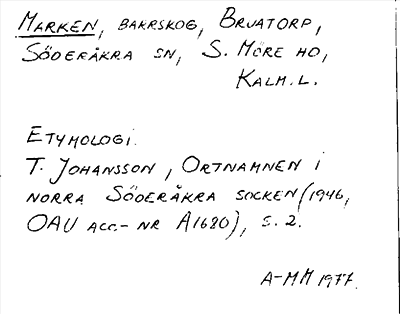 MARKEN, BAKRSKOG, BRUATORP,
SÖDERÅKRA SN, S. MÖRE HD,
KALM.L.
ETYMOLOGI.
T. JOHANSSON, ORTNAMNEN I
NORRA SÖDERÅKRA SOCKEN (1946,
OAU ACC.-NR A1680), S. 2.
A-MM 1977.